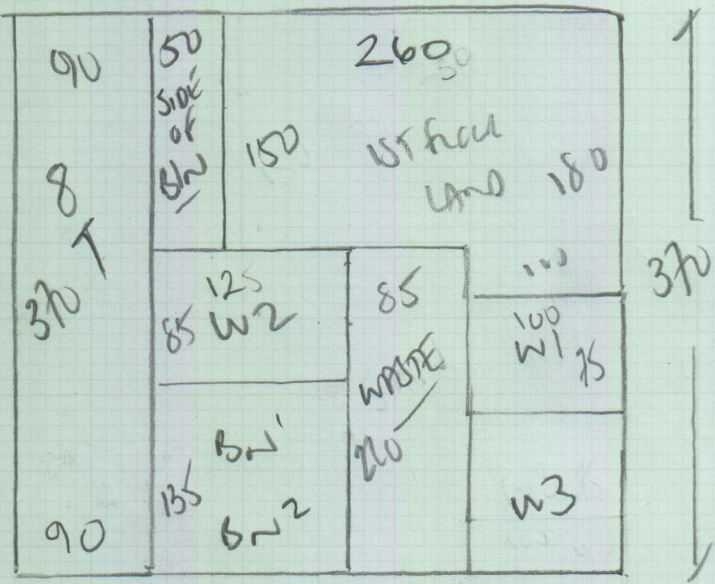 90
8
370
90
50
SIDE
OF
BIN
260
150
1ST FLOOR
LAND
180
100
370
125
85 W2
85
WASTE
220
100
W1 75
135
BN1
BN2
W3